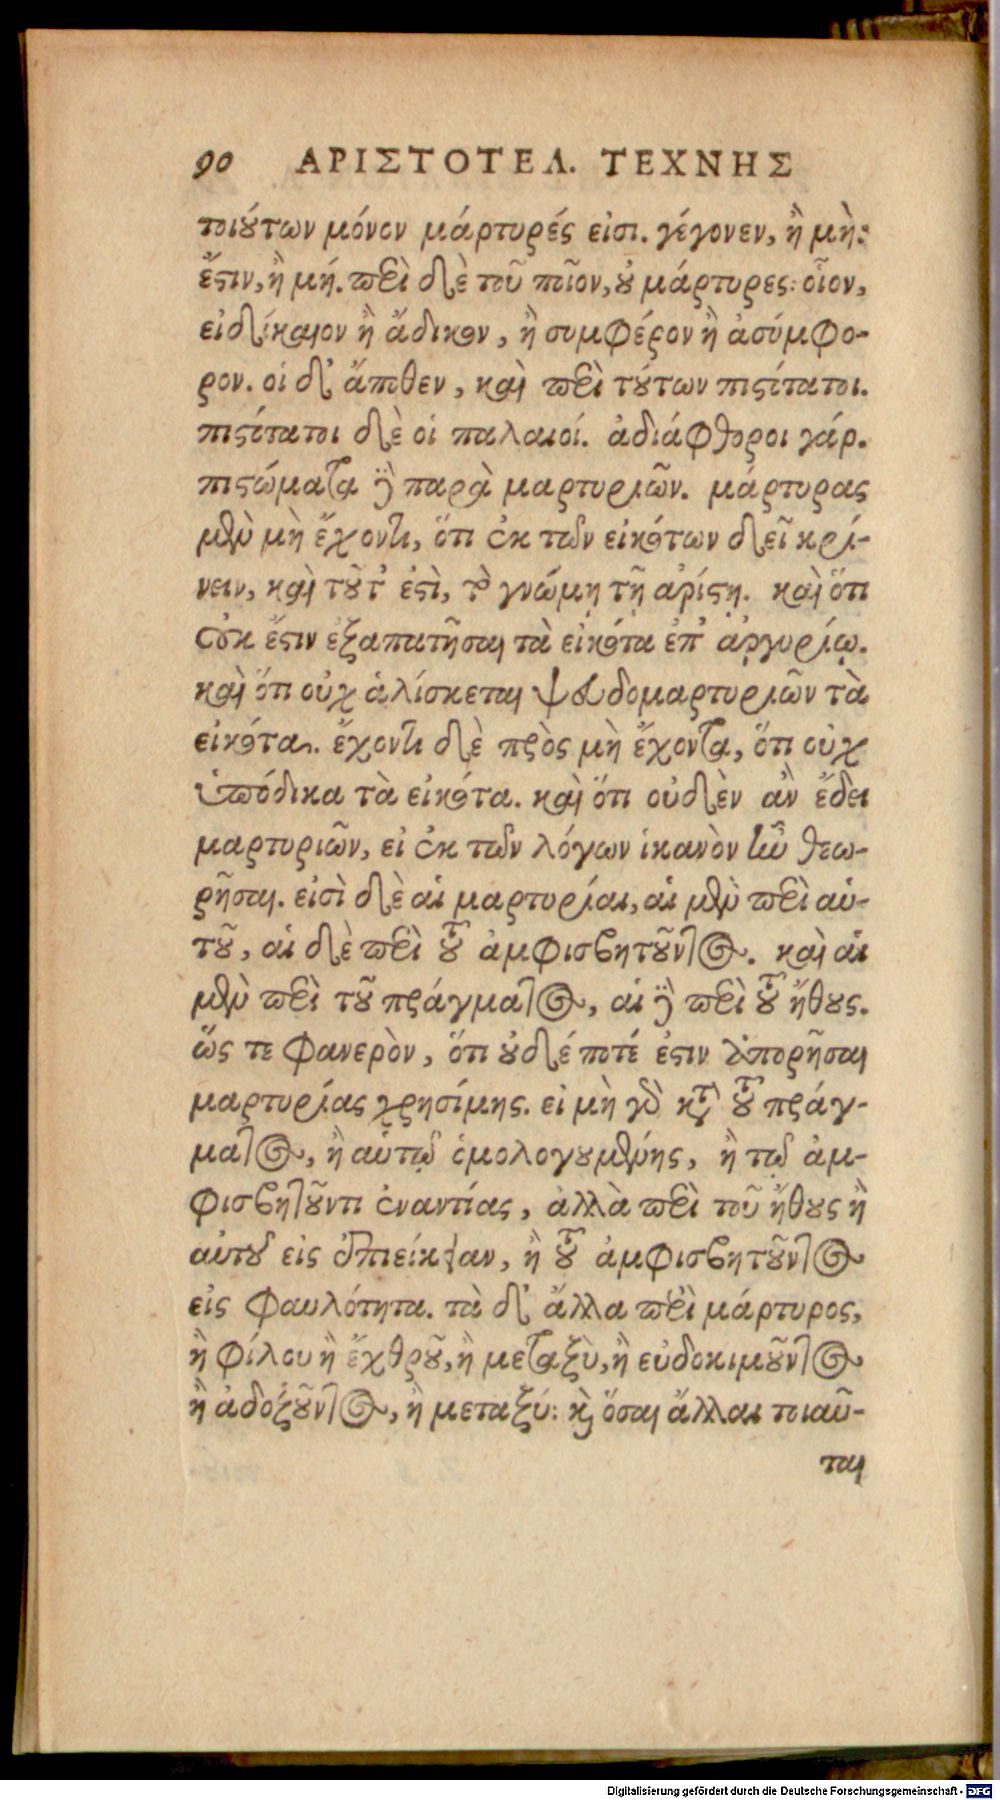 90 ΑΡΙΣΤΟΤΕΛ. ΤΕΧΝΗΣ
τοιούτων μόνον μάρτυρές εἰσι. γέγονεν, ἢ μὴ:
ἔστιν, ἢ μή. περὶ δὲ τοῦ ποῖον, οὐ μάρτυρες: οἷον,
εἰ δίκαιον ἢ ἄδικον, ἢ συμφέρον ἢ ἀσύμφο-
ρον. οἱ δ' ἄποθεν, καὶ περὶ τούτων πιστότατοι.
πιστότατοι δὲ οἱ παλαιοί. ἀδιάφθοροι γάρ.
πιστώματα δὲ παρὰ μαρτυριῶν. μάρτυρας
μὲν μὴ ἔχοντι, ὅτι ἐκ τῶν εἰκότων δεῖ κρί-
νειν, καὶ τοῦτ' ἐστὶ, τὸ γνώμῃ τῇ ἀρίστῃ. καὶ ὅτι
οὐκ ἔστιν ἐξαπατῆσαι τὰ εἰκότα ἐπ' ἀργυρίῳ.
καὶ ὅτι οὐχ ἁλίσκεται ψευδομαρτυριῶν τὰ
εἰκότα. ἔχοντι δὲ πρὸς μὴ ἔχοντα, ὅτι οὐχ
ὑπόδικα τὰ εἰκότα. καὶ ὅτι οὐδὲν ἂν ἔδει
μαρτυριῶν, εἰ ἐκ τῶν λόγων ἱκανὸν ἦν θεω-
ρῆσαι. εἰσὶ δὲ αἱ μαρτυρίαι, αἱ μὲν περὶ αὑ-
τοῦ, αἱ δὲ περὶ τοῦ ἀμφισβητοῦντος. καὶ αἱ
μὲν περὶ τοῦ πράγματος, αἱ δὲ περὶ τοῦ ἤθους.
ὥς τε φανερὸν, ὅτι οὐδέποτέ ἐστιν ἀπορῆσαι
μαρτυρίας χρησίμης. εἰ μὴ γὰρ κατὰ τοῦ πράγ-
ματος, ἢ αὑτῷ ὁμολογουμένης, ἢ τῷ ἀμ-
φισβητοῦντι ἐναντίας, ἀλλὰ περὶ τοῦ ἤθους ἢ
αὑτοῦ εἰς ἐπιείκειαν, ἢ τοῦ ἀμφισβητοῦντος
εἰς φαυλότητα. τὰ δ' ἄλλα περὶ μάρτυρος,
ἢ φίλου ἢ ἔχθροῦ, ἢ μεταξὺ, ἢ εὐδοκιμοῦντος
ἢ ἀδοξοῦντος, ἢ μεταξύ: καὶ ὅσαι ἄλλαι τοιαῦ-
ται
Digitalisierung gefördert durch die Deutsche Forschungsgemeinschaft - DFG